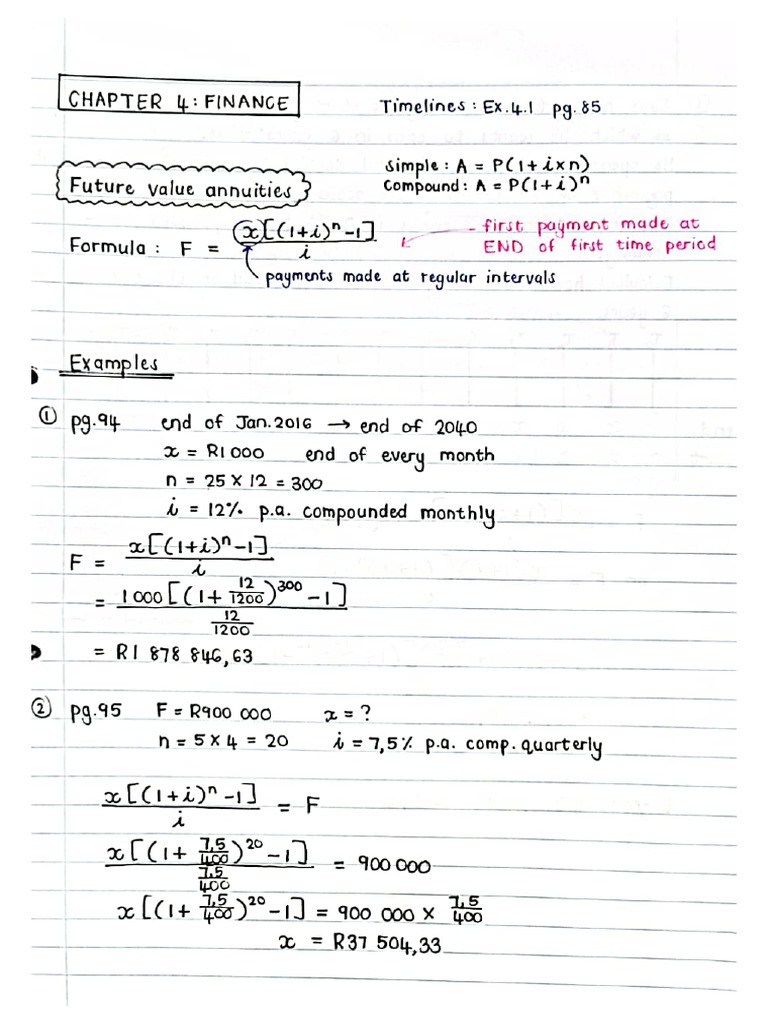 CHAPTER 4: FINANCE
Timelines: Ex.4.1 pg.85
Simple: A = P(1+i×n)
Compound: A = P(1+i)^n
Future value annuities
Formula: F = x[(1+i)^n -1] / i
- first payment made at
END of first time period
payments made at regular intervals
Examples
① pg.94 end of Jan.2016 → end of 2040
x = R1 000 end of every month
n = 25 × 12 = 300
i = 12% p.a. compounded monthly
F = x[(1+i)^n -1] / i
= 1 000[(1+ 12/1200)^300 -1] / (12/1200)
= R1 878 846,63
② pg.95 F = R900 000 x = ?
n = 5 × 4 = 20 i = 7,5% p.a. comp. quarterly
x[(1+i)^n -1] / i = F
x[(1+ 7,5/400)^20 -1] / (7,5/400) = 900 000
x[(1+ 7,5/400)^20 -1] = 900 000 × 7,5/400
x = R37 504,33